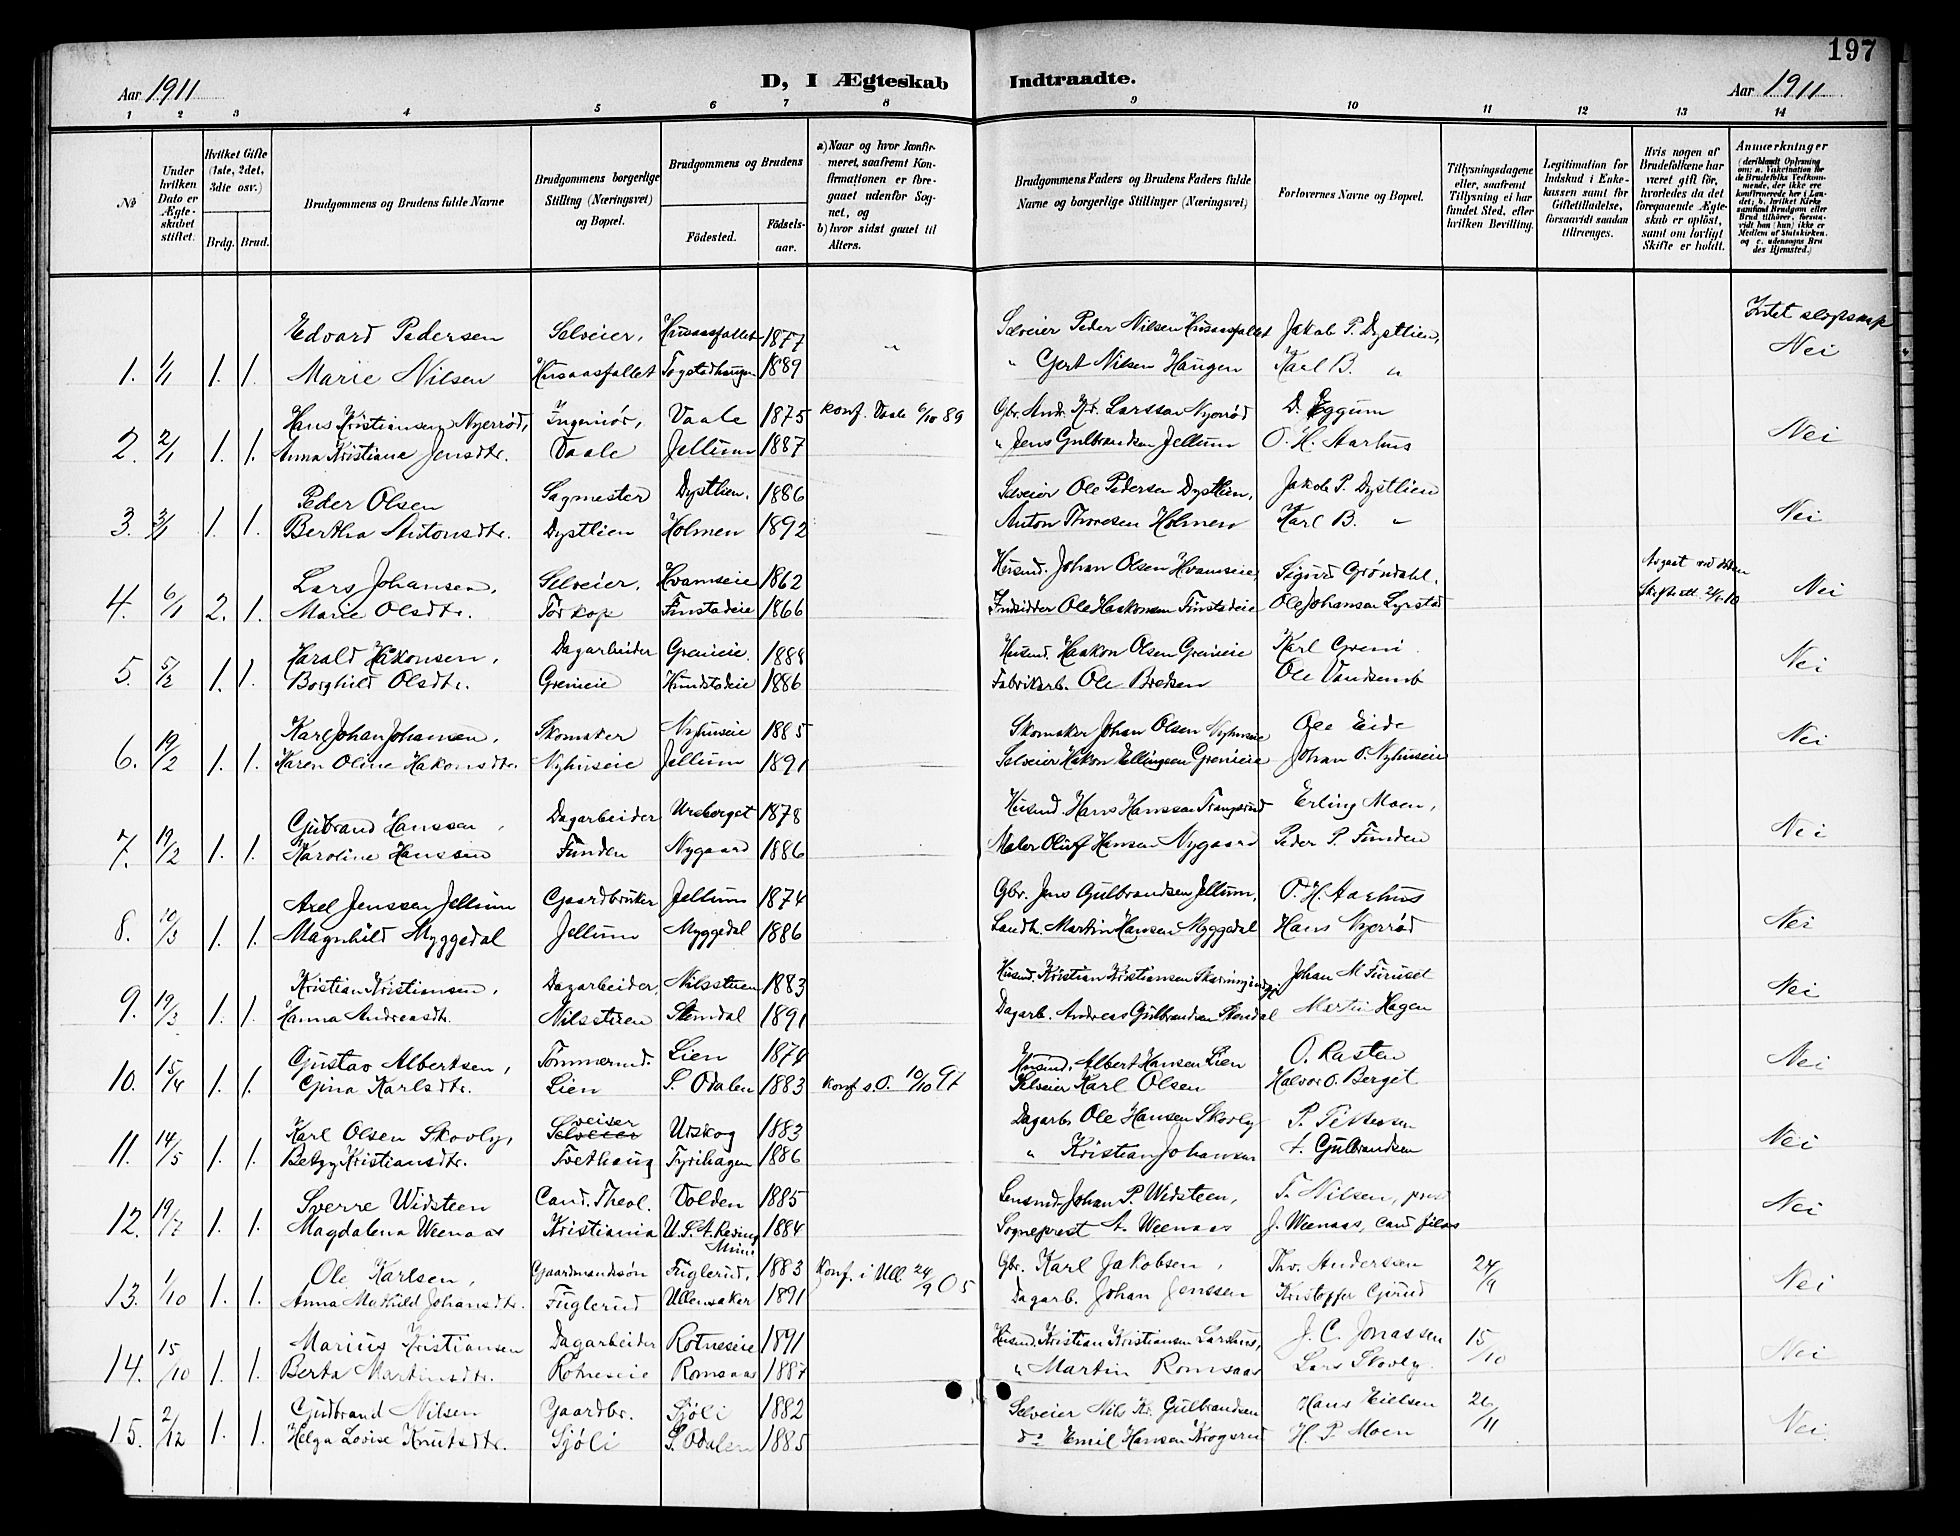 197
Aar 1911 D, I Ægteskab Indtraadte. Aar 1911
1 2 3 4 5 6 7 8 9 10 11 12 13 14
No
Under hvilken Dato er Ægteskabet stiftet.
Hvilket Gifte (1ste, 2det, 3die osv.)
Brdg. Brud.
Brudgommens og Brudens fulde Navne
Brudgommens borgerlige Stilling (Næringsvei) og Bopæl.
Brudgommens og Brudens
Fødested. Fødselsaar.
a) Naar og hvor konfirmeret, saafremt Konfirmationen er foregaaet udenfor Sognet, og
b) hvor sidst gaaet til Alters.
Brudgommens Faders og Brudens Faders fulde Navne og borgerlige Stillinger (Næringsvei)
Forlovernes Navne og Bopæl.
Tillysningsdagene eller, saafremt Tillysning ei har fundet Sted, efter hvilken Bevilling.
Legitimation for Indskud i Enkekassen samt for Giftetilladelse, forsaavidt saadan tiltrænges.
Hvis nogen af Brudefolkene har været gift før, hvorledes da det foregaaende Ægteskab er opløst, samt om lovligt Skifte er holdt.
Anmærkninger (deriblandt Oplysning om: a. Vaksination for de Brudefolks Vedkommende, der ikke ere konfirmerede her i Landet; b. hvilket Kirkesamfund Brudgom eller Brud tilhører, forsaavidt han (hun) ikke er Medlem af Statskirken, og c. udensogns Brudes Hjemsted.)
Edvard Pedersen Selveier, Husaasfallet 1877 " Selveier Peder Nilsen Husaasfallet Jakob P. Dystlien,
1. 1/1 1. 1. Marie Nilsen Husaasfallet Togstadhaugen 1889 " Gert Nilsen Haugen Karl B. " Nei
Hans Kristiansen Nyerrød, Ingeniør, Vaale 1875 konf. Vaale 6/10 89 Gbr. And. Kr. Larssen Nyerrød D. Eggum
2. 2/1 1. 1. Anna Kristiane Jensdtr. Vaale Jellum 1887 " Jens Gulbrandsen Jellum O. H. Aarhus Nei
Peder Olsen Sagmester Dystlien, 1886 Selveier Ole Pedersen Dystlien, Jakob P. Dystlien
3. 3/1 1. 1. Bertha Antonsdtr. Dystlien Holmen 1892 Anton Thoresen Holmen Karl B. " Nei
Lars Johansen, Selveier, Hvamseie 1862 Husmd. Johan Olsen Hvamseie, Sigurd Grøndahl,
4. 6/1 2. 1. Marie Olsdtr. Torkop Finstadeie 1866 Indsidder Ole Haakonsen Finstadeie Ole Johansen Nei
Harald Håkonsen, Dagarbeider Grenieie 1888 Husmd. Haakon Olsen Grenieie Karl Greni
5. 5/2 1. 1. Borghild Olsdtr. Grenieie Hundstadeie 1886 Fabrikarb. Ole Bredsen Ole Vandsemb Nei
Karl Johan Johansen, Skomaker Nyhuseie 1885 Skomaker Johan Olsen Nyhuseie Ole Eide
6. 19/2 1. 1. Karen Oline Hakonsdtr. Nyhuseie Jellum 1891 Selveier Hakon Ellingsen Grenieie Johan O. Nyhuseie Nei
Gulbrand Hanssen, Dagarbeider Ursborget 1878 Husmd. Hans Hanssen Trangsrud Erling Moen,
7. 19/2 1. 1. Karoline Hanssen Funden Nygaard 1886 Maler Oluf Hansen Nygaard Peder P. Funden Nei
Axel Jenssen Jellum Gaardbruker Jellum 1874 Gbr. Jens Gulbrandsen Jellum, O. H. Aarhus
8. 10/3 1. 1. Magnhild Myggedal Jellum Myggedal 1886 Landh. Martin Hansen Myggedal Hans Nyerrød Nei
Kristian Kristiansen, Dagarbeider, Nilsstuen 1883 Husmd. Kristian Kristiansen Johan M. Furuset
9. 19/3 1. 1. Hanna Andreasdtr. Nilsstuen Stendal 1891 Dagarb. Andreas Gulbrandsen Stendal Martin Hagen Nei
Gustav Albertsen, Tømmermd. Lien 1874 Husmd. Albert Hansen Lien O. Rasten
10. 15/4 1. 1. Gina Karlsdtr. Lien S. Odalen 1883 Konf. s. O. 10/10 97 Selveier Karl Olsen Halvor O. Berget Nei
Karl Olsen Skovly, Sveiser Urskog 1883 Dagarb. Ole Hansen Skovly P. Pettersen
11. 14/5 1. 1. Betzy Kristiansdtr. Tvethaug Fyrihagen 1886 " Kristian Johansen F. Gulbrandsen Nei
Sverre Widsteen Cand. Theol. Volden 1885 Lensmd. Johan P. Widsteen, T. Nilsen, prest
12. 19/7 1. 1. Magdalena Weenaas Kristiania U.S.A. Minn 1884 Sogneprest A. Weenaas J. Weenaas, cand filos Nei
Ole Karlsen, Gaardmandssøn Fuglerud, 1883 Konf. i Ull 24/9 05 Gbr. Karl Jakobsen, Thv. Andersen 24/9
13. 1/10 1. 1. Anna Mathild Johansdtr. Fuglerud Ullensaker 1891 Dagarb. Johan Jenssen Kristoffer Gjrud Nei
Marius Kristiansen Dagarbeider Rotneseie 1891 Husmd. Kristian Kristiansen Larshus, J. C. Jonassen 15/10
14. 15/10 1. 1. Berta Martinsdtr. Rotneseie Romsaas 1887 " Martin Romsaas Lars Skovly. Nei
Gudbrand Nilsen Gaardbr. Sjøli 1882 Selveier Nils Kr. Gulbrandsen Hans Nielsen 26/11
15. 2/12 1. 1. Helga Lovise Knutsdtr. Sjöli S. Odalen 1885 do Emil Hansen Krogsrud H. P. Moen Nei